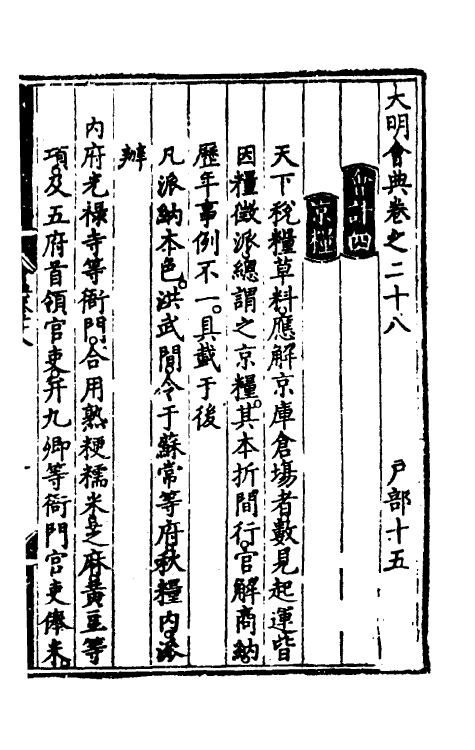 大明會典卷之二十八　戶部十五
會計四
京糧
天下稅糧草料應解京庫倉場者數見起運皆
因糧徵派總謂之京糧其本折間行官解商納
歷年事例不一具載于後
凡派納本色洪武間令于蘇常等府秋糧內派
辦
內府光祿寺等衙門合用熟粳糯米芝麻黃豆等
項及五府首領官吏并九卿等衙門官吏俸米